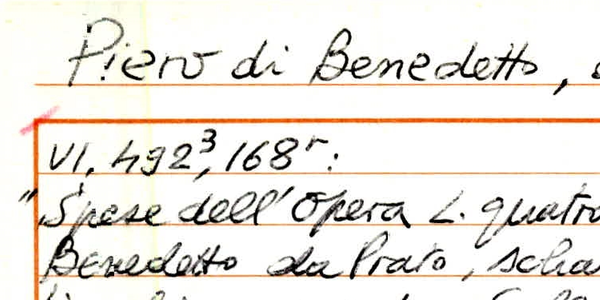 Piero di Benedetto,
VI, 492³, 168ʳ:
"Spese dell'Opera L. quatro
Benedetto da Prato, scha